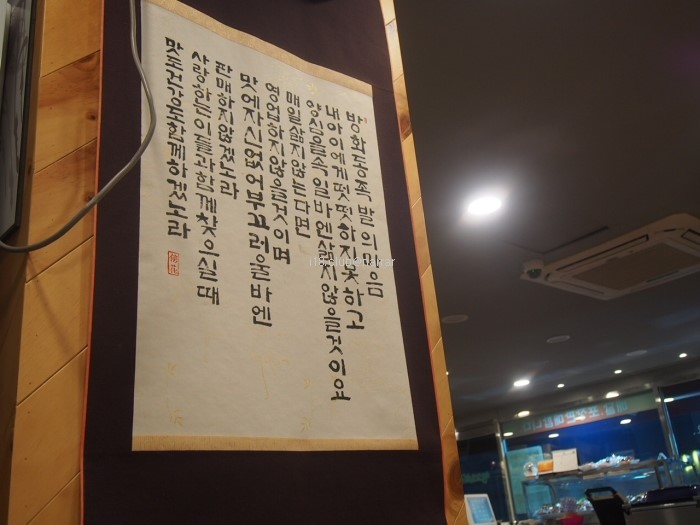 방화동족발의믿음
내아이에게떳떳하지못하고
양심을속일바엔삶지않을것이요
매일삶지않는다면
영업하지않을것이며
맛에자신없어부끄러울바엔
판매하지않겠노라
사랑하는이들과함께찾으실때
맛도건강도함께하겠노라